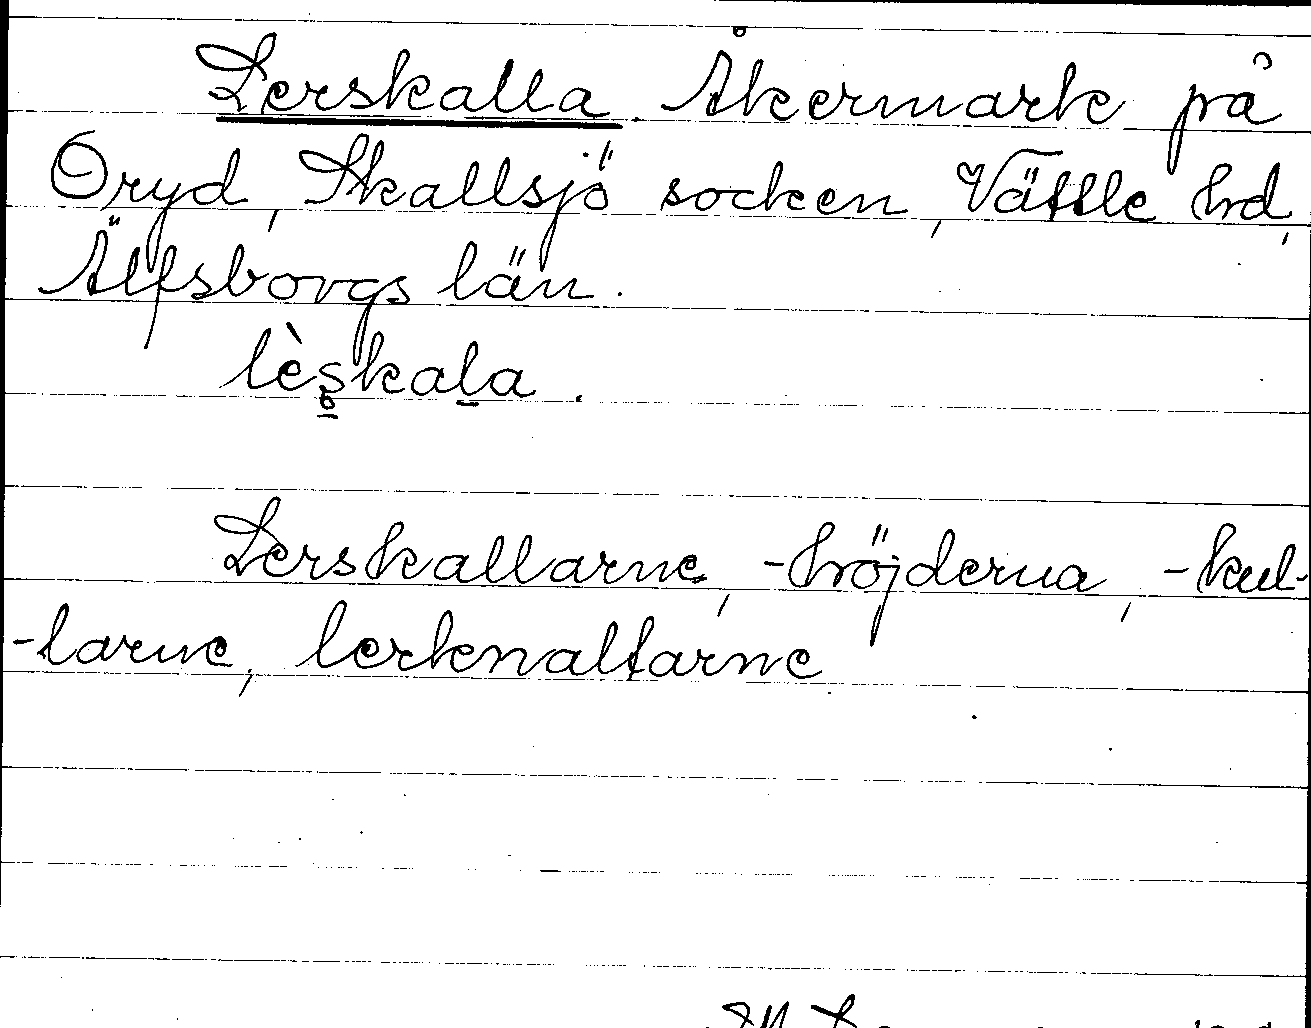 Lerskalla. Åkermark på
Öryd, Skallsjö socken, Vättle hrd,
Älfsborgs län.
lèʂkala.
Lerskallarne, -höjderna, -kul-
-larne, lerknallarne